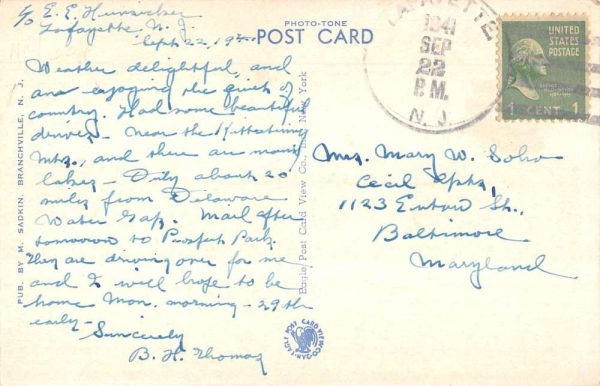 c/o E. E. Hunsicker
Lafayette, N. J.
Sept 22, 19
PHOTO-TONE
POST CARD
Weather delightful, and
am enjoying the quiet of
country. Had some beautiful
drives - Near the Kittatinny
Mts., and there are many
lakes - Only about 20
miles from Delaware
Water Gap. Mail after
tomorrow to Prospect Park.
They are driving over for me
and I will hope to be
home Mon. morning - 29th
early -
Sincerely
B. H. Thomas
PUB. BY M. SADKIN, BRANCHVILLE, N. J.
Eagle Post Card View Co., Inc., New York
LAFAYETTE
1941
SEP
22
P.M.
N. J.
UNITED
STATES
POSTAGE
1 CENT 1
Mrs. Mary W. Soho
Cecil Apts,
1123 Eutaw St.,
Baltimore
Maryland
EAGLE POST CARD VIEW CO.